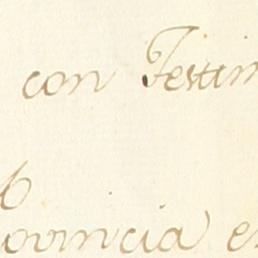 con Testim
ovincia e